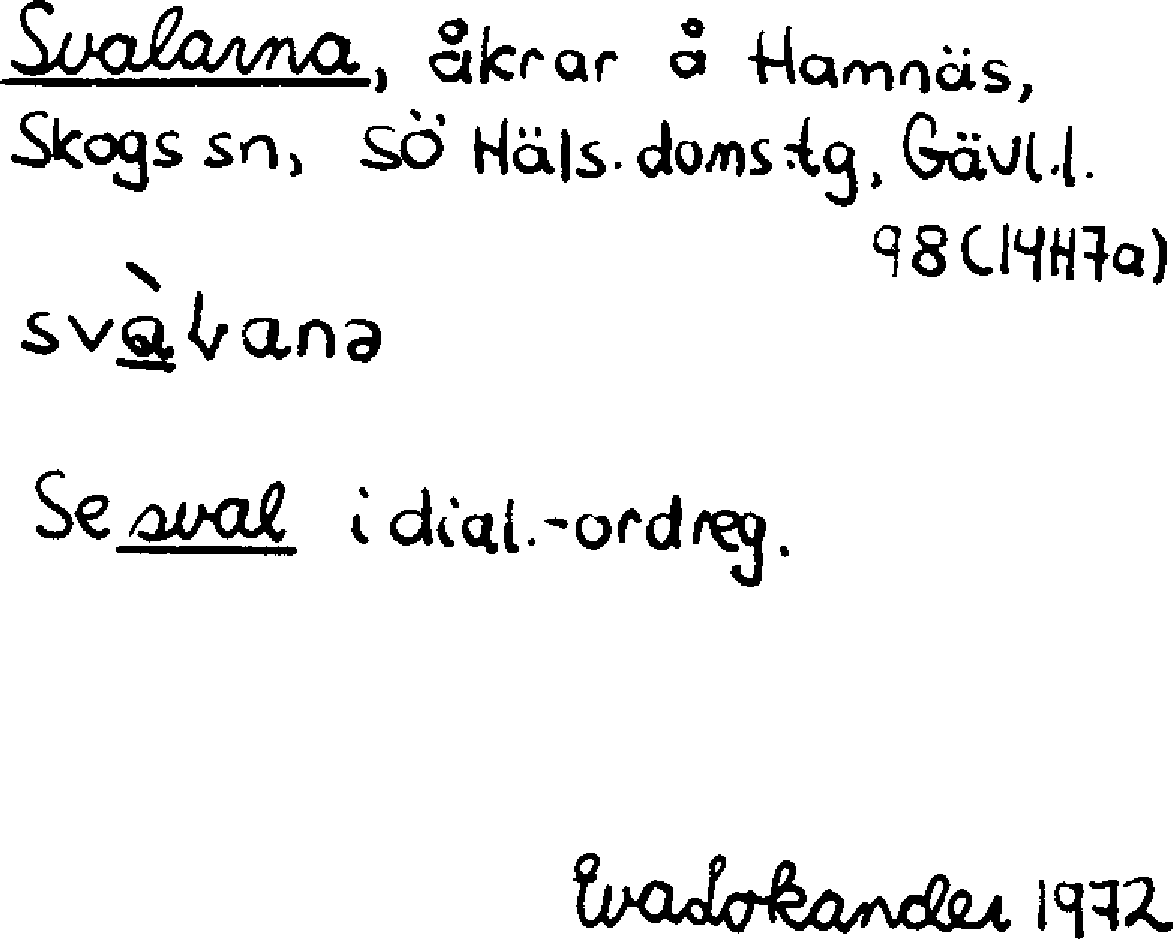 Svalarna, åkrar å Hamnäs,
Skogs sn, SÖ Häls. doms:tg, Gävl.l.
98 (14H7a)
svàɽanə
Se sval i dial.-ordreg.
Eva Lokander 1972